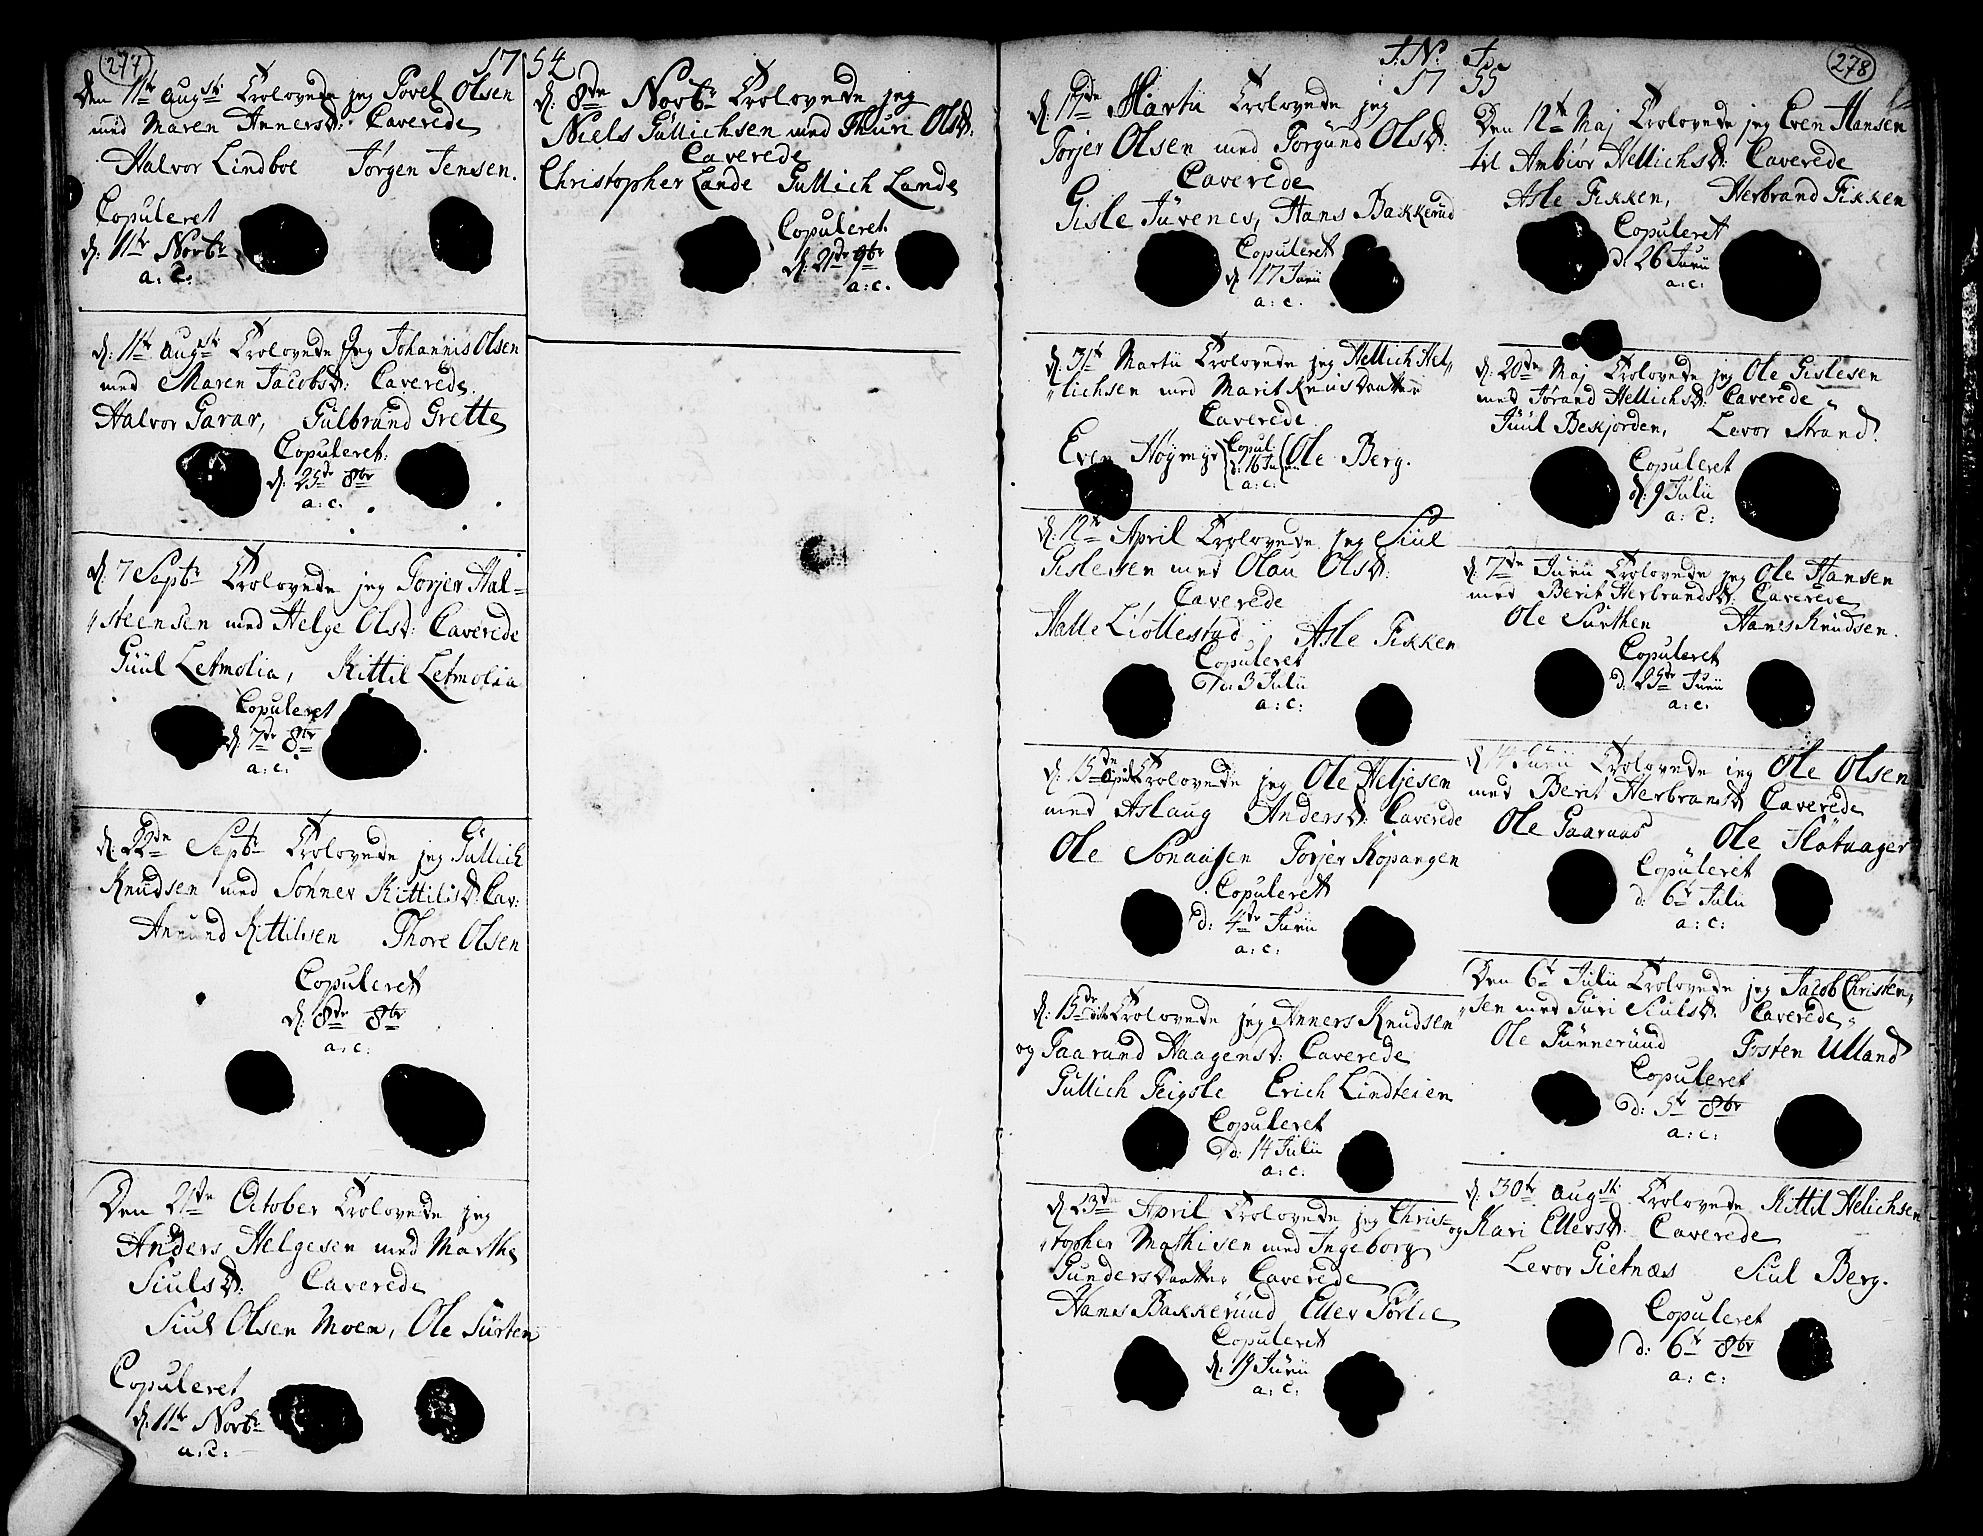 277
1754
Den 11te Augsti Trolovede jeg Povel Olsen
med Maren Annersd: Caverede
Halvor Lindboe Jørgen Jensen.
Copuleret
d: 11te Novbr
a: c:
d: 11te Augsti Trolovede Jeg Johannis Olsen
med Maren Jacobsd: Caverede
Halvor Garar, Gulbrand Grette
Copuleret:
d: 25de 8br
a: c.
d: 7 Septbr Trolovede jeg Torjer Hal-
steensen med Helge Olsd: Caverede
Giuul Letmolia, Kittil Letmolia
Copuleret
d: 7de 8br
a: c:
d: 22de Septbr Trolovede jeg Gullich
Knudsen med Sønnev Kittilsd: Cav:
Amund Kittilsen Thore Olsen
Copuleret
d: 8de 8br
a: c:
Den 21de October Trolovede jeg
Anders Helgesen med Marthe
Siulsd: Caverede
Siul Olsen Moen, Ole Surten
Copuleret
d: 11te Novbr
a: c:
d: 8de Novbr Trolovede jeg
Niels Gullichsen med Thuri Olsd:
Caverede
Christopher Lande Gullich Lande
Copuleret
d: 21de 9br
a: c.
J: N: J:
1755
278
d: 11de Martii Trolovede jeg
Torjer Olsen med Torgund Olsd:
Caverede
Gisle Juvenes, Hans Bakkerud
Copuleret
d: 17 Junii
a: c.
d: 31te Martii Trolovede jeg Hellich Hel-
lichsen med Marit Knus Daatter
Caverede
Even Høymyr Copul: d: 16 Ju a: c: Ole Berg.
d: 12te April Trolovede jeg Siul
Gislesen med Olau Olsd:
Caverede
Halle Liollestad, Asle Fikken
Copuleret
D: 3 Julii
a: c:
d: 15de April Trolovede jeg Ole Heljesen
med Aslaug Andersd: Caverede
Ole Torjer Kopangen
Copuleret
d: 4de Junii
a: c:
d: 15de dito Trolovede jeg Anners Knudsen
og Taarand Haagensd: Caverede
Gullich Teigsle Erich Lindteien
Copuleret
D: 14 Julii
a: c:
d: 23de April Trolovede jeg Chris-
topher Mathisen med Ingeborg
Gunders Daatter Caverede
Hans Bakkerund Eller Sørlie
Copuleret
d: 19 Junii
a: c:
Den 12te Maj Trolovede jeg Even Hansen
til Anbiør Hellichsd: Caverede
Asle Fikken, Herbrand Fikken
Copuleret
d: 26 Junii
a: c:
d: 20de Maj Trolovede jeg Ole Gislesen
med Jørand Hellichsd: Caverede
Juul Bekjorden, Levor Strand.
Copuleret
d: 9 Julii
a: c:
d: 7de Junii Trolovede jeg Ole Hansen
med Berit Herbrandsd: Caverede
Ole Surthen Hans Knudsen.
Copuleret
d: 25de Junii
a: c:
d: 14 Junii Trolovede jeg Ole Olsen
med Berit Herbransd Caverede
Ole Gaaraas Ole Slotnager
Copuleret
d: 6te Julii
a: c:
Den 6te Julii Trolovede jeg Jacob Christen-
sen med Guri Siulsd: Caverede
Ole Tunnerund Tosten Ulland
Copuleret
d: 5te 8br
a: c:
d: 30te Augsti Trolovede Kittil Helichsen
og Kari Ellersd: Caverede
Levor Gietnæs Siul Berg.
Copuleret
d: 6te 8br
a: c: